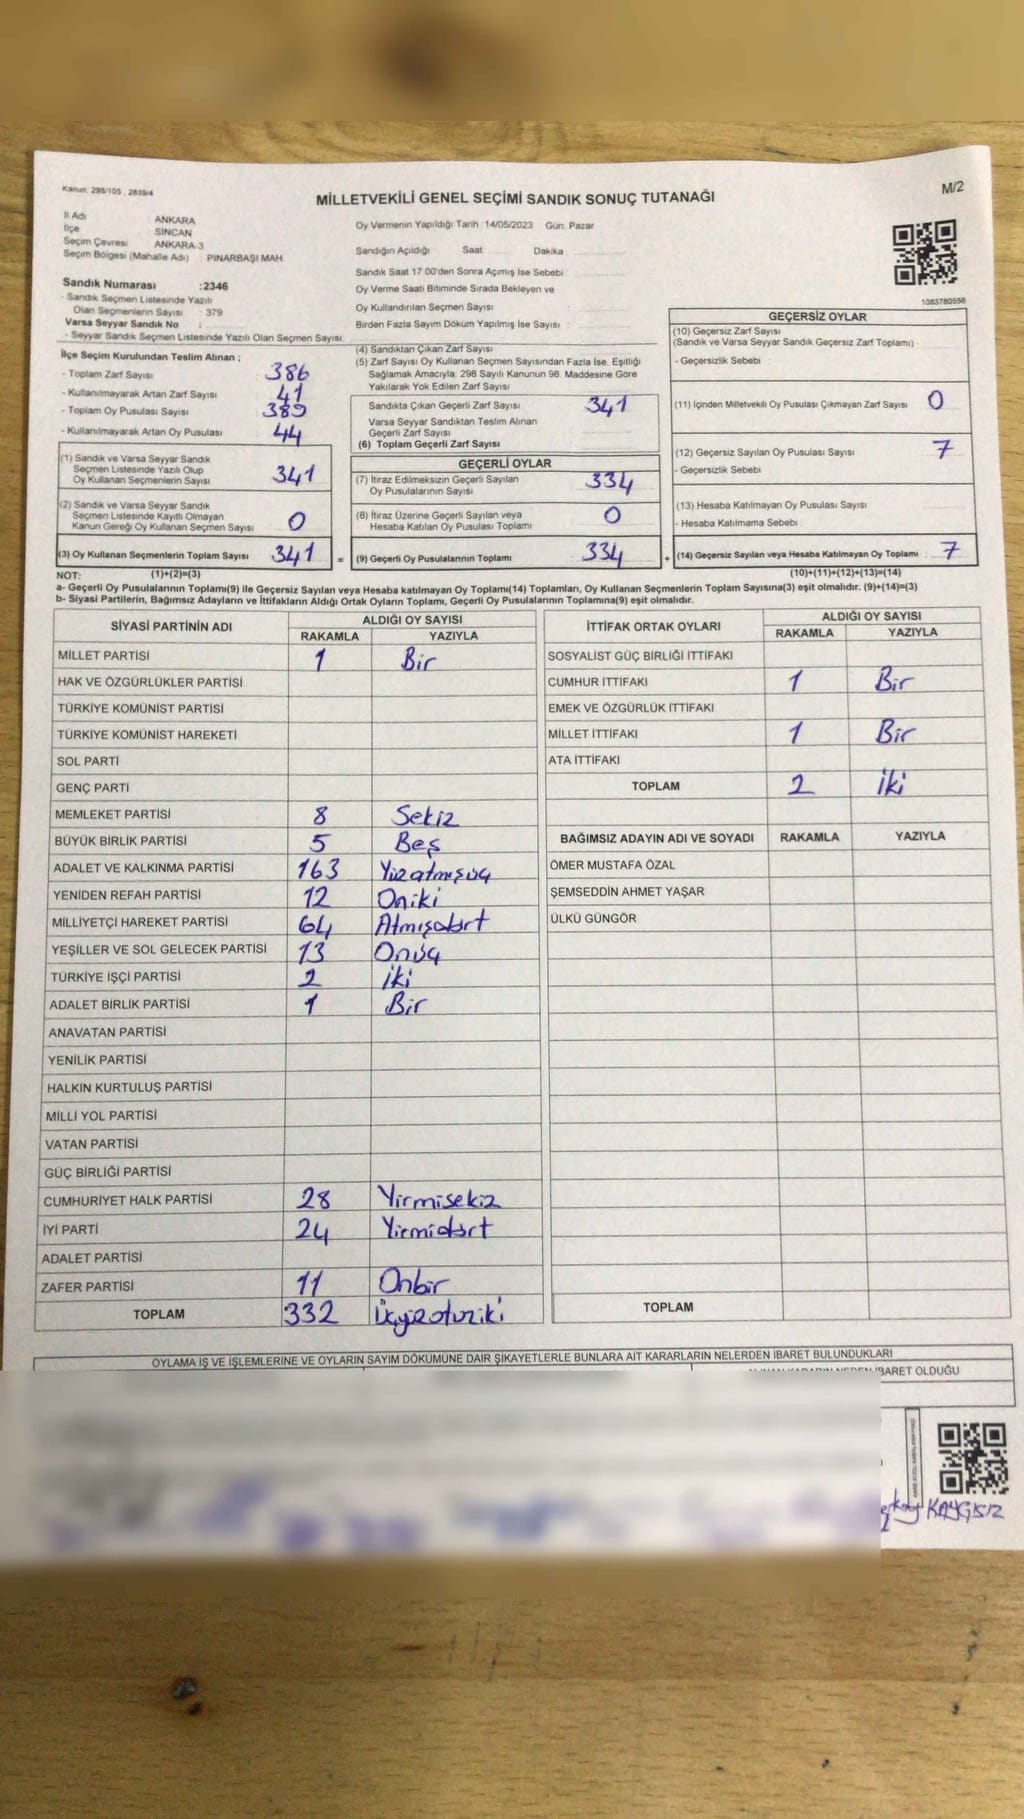 Kanun: 298/105 , 2839/4
MİLLETVEKİLİ GENEL SEÇİMİ SANDIK SONUÇ TUTANAĞI
M/2
İl Adı ANKARA
İlçe SİNCAN
Seçim Çevresi ANKARA-3
Seçim Bölgesi (Mahalle Adı) PINARBAŞI MAH.
Sandık Numarası :2346
- Sandık Seçmen Listesinde Yazılı
Olan Seçmenlerin Sayısı : 379
Varsa Seyyar Sandık No :
- Seyyar Sandık Seçmen Listesinde Yazılı Olan Seçmen Sayısı:
Oy Vermenin Yapıldığı Tarih 14/05/2023 Gün: Pazar
Sandığın Açıldığı Saat: Dakika
Sandık Saat 17 00'den Sonra Açılmış İse Sebebi
Oy Verme Saati Bitiminde Sırada Bekleyen ve
Oy Kullandırılan Seçmen Sayısı
Birden Fazla Sayım Döküm Yapılmış İse Sayısı :
1083780556
İlçe Seçim Kurulundan Teslim Alınan ;
- Toplam Zarf Sayısı 386
- Kullanılmayarak Artan Zarf Sayısı 41
- Toplam Oy Pusulası Sayısı 385
- Kullanılmayarak Artan Oy Pusulası 44
(1) Sandık ve Varsa Seyyar Sandık
Seçmen Listesinde Yazılı Olup
Oy Kullanan Seçmenlerin Sayısı 341
(2) Sandık ve Varsa Seyyar Sandık
Seçmen Listesinde Kayıtlı Olmayan
Kanun Gereği Oy Kullanan Seçmen Sayısı 0
(3) Oy Kullanan Seçmenlerin Toplam Sayısı 341 =
(4) Sandıktan Çıkan Zarf Sayısı
(5) Zarf Sayısı Oy Kullanan Seçmen Sayısından Fazla İse, Eşitliği
Sağlamak Amacıyla; 298 Sayılı Kanunun 98. Maddesine Göre
Yakılarak Yok Edilen Zarf Sayısı
Sandıkta Çıkan Geçerli Zarf Sayısı 341
Varsa Seyyar Sandıktan Teslim Alınan
Geçerli Zarf Sayısı
(6) Toplam Geçerli Zarf Sayısı
GEÇERLİ OYLAR
(7) İtiraz Edilmeksizin Geçerli Sayılan
Oy Pusulalarının Sayısı 334
(8) İtiraz Üzerine Geçerli Sayılan veya
Hesaba Katılan Oy Pusulası Toplamı 0
(9) Geçerli Oy Pusulalarının Toplamı 334 +
GEÇERSİZ OYLAR
(10) Geçersiz Zarf Sayısı
(Sandık ve Varsa Seyyar Sandık Geçersiz Zarf Toplamı)
- Geçersizlik Sebebi :
(11) İçinden Milletvekili Oy Pusulası Çıkmayan Zarf Sayısı 0
(12) Geçersiz Sayılan Oy Pusulası Sayısı 7
- Geçersizlik Sebebi
(13) Hesaba Katılmayan Oy Pusulası Sayısı
- Hesaba Katılmama Sebebi
(14) Geçersiz Sayılan veya Hesaba Katılmayan Oy Toplamı 7
NOT: (1)+(2)=(3) (10)+(11)+(12)+(13)=(14)
a- Geçerli Oy Pusulalarının Toplamı(9) ile Geçersiz Sayılan veya Hesaba katılmayan Oy Toplamı(14) Toplamları, Oy Kullanan Seçmenlerin Toplam Sayısına(3) eşit olmalıdır. (9)+(14)=(3)
b- Siyasi Partilerin, Bağımsız Adayların ve İttifakların Aldığı Ortak Oyların Toplamı, Geçerli Oy Pusulalarının Toplamına(9) eşit olmalıdır.
SİYASİ PARTİNİN ADI ALDIĞI OY SAYISI
RAKAMLA YAZIYLA
MİLLET PARTİSİ 1 Bir
HAK VE ÖZGÜRLÜKLER PARTİSİ
TÜRKİYE KOMÜNİST PARTİSİ
TÜRKİYE KOMÜNİST HAREKETİ
SOL PARTİ
GENÇ PARTİ
MEMLEKET PARTİSİ 8 Sekiz
BÜYÜK BİRLİK PARTİSİ 5 Beş
ADALET VE KALKINMA PARTİSİ 163 Yüzatmışüç
YENİDEN REFAH PARTİSİ 12 Oniki
MİLLİYETÇİ HAREKET PARTİSİ 64 Atmışdört
YEŞİLLER VE SOL GELECEK PARTİSİ 13 Onüç
TÜRKİYE İŞÇİ PARTİSİ 2 İki
ADALET BİRLİK PARTİSİ 1 Bir
ANAVATAN PARTİSİ
YENİLİK PARTİSİ
HALKIN KURTULUŞ PARTİSİ
MİLLİ YOL PARTİSİ
VATAN PARTİSİ
GÜÇ BİRLİĞİ PARTİSİ
CUMHURİYET HALK PARTİSİ 28 Yirmisekiz
İYİ PARTİ 24 Yirmidört
ADALET PARTİSİ
ZAFER PARTİSİ 11 Onbir
TOPLAM 332 Üçyüzotuziki
İTTİFAK ORTAK OYLARI ALDIĞI OY SAYISI
RAKAMLA YAZIYLA
SOSYALİST GÜÇ BİRLİĞİ İTTİFAKI
CUMHUR İTTİFAKI 1 Bir
EMEK VE ÖZGÜRLÜK İTTİFAKI
MİLLET İTTİFAKI 1 Bir
ATA İTTİFAKI
TOPLAM 2 İki
BAĞIMSIZ ADAYIN ADI VE SOYADI RAKAMLA YAZIYLA
ÖMER MUSTAFA ÖZAL
ŞEMSEDDİN AHMET YAŞAR
ÜLKÜ GÜNGÖR
TOPLAM
OYLAMA İŞ VE İŞLEMLERİNE VE OYLARIN SAYIM DÖKÜMÜNE DAİR ŞİKAYETLERLE BUNLARA AİT KARARLARIN NELERDEN İBARET BULUNDUKLARI
İBARET OLDUĞU
KAYGISIZ